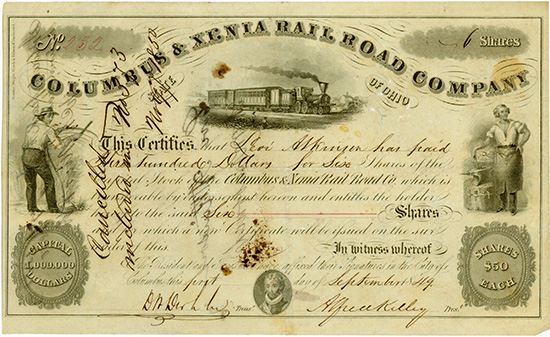 No. 252
6 Shares
COLUMBUS & XENIA RAIL ROAD COMPANY
STATE OF OHIO
This Certifies that Levi Atkinson has paid
Six hundred Dollars for Six Shares of the
Stock of the Columbus & Xenia Rail Road Co. which is
hereon and entitles the holder
to the said Six Shares
which a new Certificate will be issued on the
of this In witness whereof
The President and have affixed their Signatures in the City of
Columbus this first day of September 49
Treasr. Alfred Kelley Prest.
CAPITAL
1,000,000
DOLLARS
SHARES
$50
EACH
Cancelled